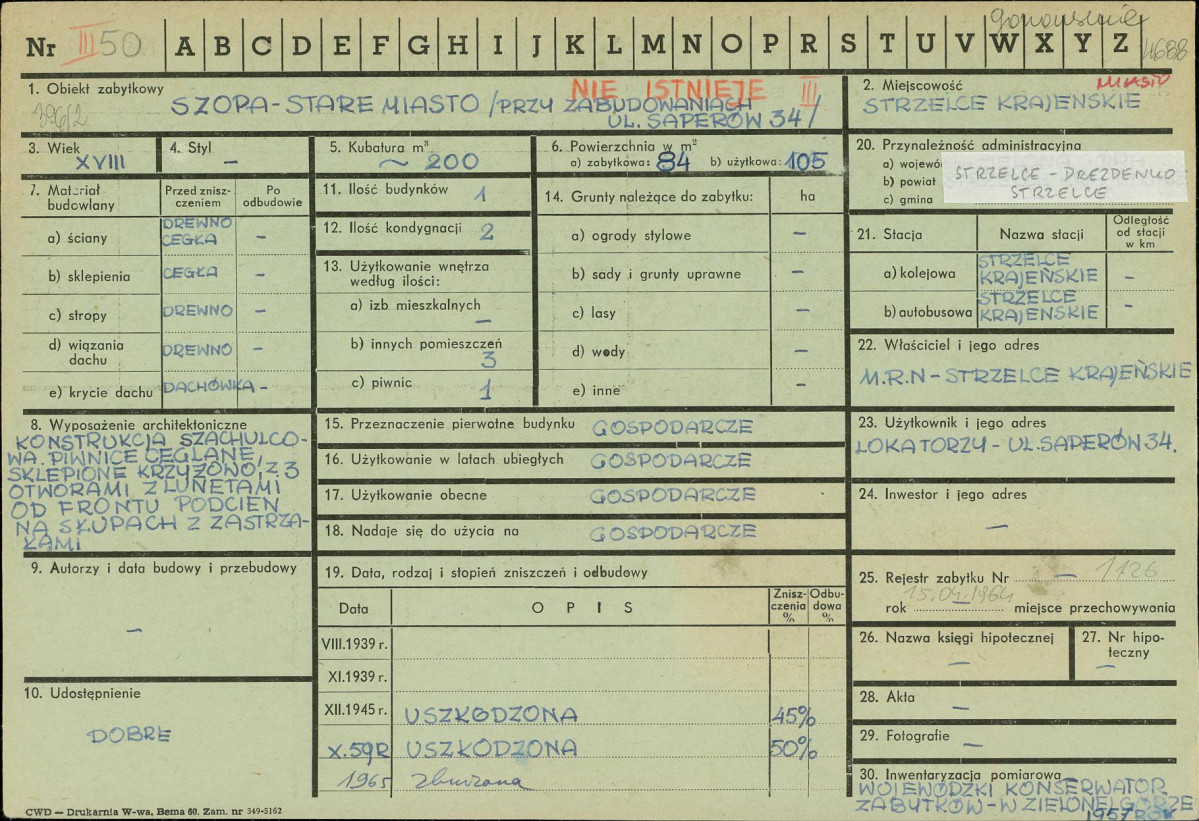 Nr III 50 A B C D E F G H I J K L M N O P R S T U V W X Y Z
4688
1. Obiekt zabytkowy
NIE ISTNIEJE III
SZOPA - STARE MIASTO / PRZY ZABUDOWANIACH
UL. SAPERÓW 34 /
396/2
2. Miejscowość
MIASTO
STRZELCE KRAJEŃSKIE
3. Wiek
XVIII
4. Styl
—
5. Kubatura m³
~ 200
6. Powierzchnia w m²
a) zabytkowa: 84 b) użytkowa: 105
7. Materiał budowlany
Przed zniszczeniem
Po odbudowie
a) ściany DREWNO CEGŁA —
b) sklepienia CEGŁA —
c) stropy DREWNO —
d) wiązania dachu DREWNO —
e) krycie dachu DACHÓWKA —
8. Wyposażenie architektoniczne
KONSTRUKCJA SZACHULCO-
WA. PIWNICE CEGLANE,
SKLEPIONE KRZYŻOWO, Z 3
OTWORAMI Z LUNETAMI
OD FRONTU PODCIEŃ
NA SŁUPACH Z ZASTRZA-
ŁAMI
9. Autorzy i data budowy i przebudowy
—
10. Udostępnienie
DOBRE
11. Ilość budynków 1
12. Ilość kondygnacji 2
13. Użytkowanie wnętrza
według ilości:
a) izb mieszkalnych
—
b) innych pomieszczeń
3
c) piwnic 1
14. Grunty należące do zabytku: ha
a) ogrody stylowe —
b) sady i grunty uprawne —
c) lasy —
d) wody —
e) inne —
15. Przeznaczenie pierwotne budynku GOSPODARCZE
16. Użytkowanie w latach ubiegłych GOSPODARCZE
17. Użytkowanie obecne GOSPODARCZE
18. Nadaje się do użycia na GOSPODARCZE
19. Data, rodzaj i stopień zniszczeń i odbudowy
Data OPIS Zniszczenia % Odbudowa %
VIII.1939 r.
XI.1939 r.
XII.1945 r. USZKODZONA 45%
X.59R USZKODZONA 50%
1965 zburzona
20. Przynależność administracyjna
a) wojewó
b) powiat
c) gmina
STRZELCE - DREZDENKO
STRZELCE
21. Stacja Nazwa stacji Odległość od stacji w km
a) kolejowa STRZELCE KRAJEŃSKIE —
b) autobusowa STRZELCE KRAJEŃSKIE —
22. Właściciel i jego adres
M.R.N - STRZELCE KRAJEŃSKIE
23. Użytkownik i jego adres
LOKATORZY - UL. SAPERÓW 34.
24. Inwestor i jego adres
—
25. Rejestr zabytku Nr — 1126
15.04.1964
rok — miejsce przechowywania
26. Nazwa księgi hipotecznej
—
27. Nr hipoteczny
—
28. Akta
—
29. Fotografie
—
30. Inwentaryzacja pomiarowa
WOJEWÓDZKI KONSERWATOR
ZABYTKÓW - W ZIELONEJ GÓRZE
1957 ROK
CWD — Drukarnia W-wa, Bema 60. Zam. nr 349-5162